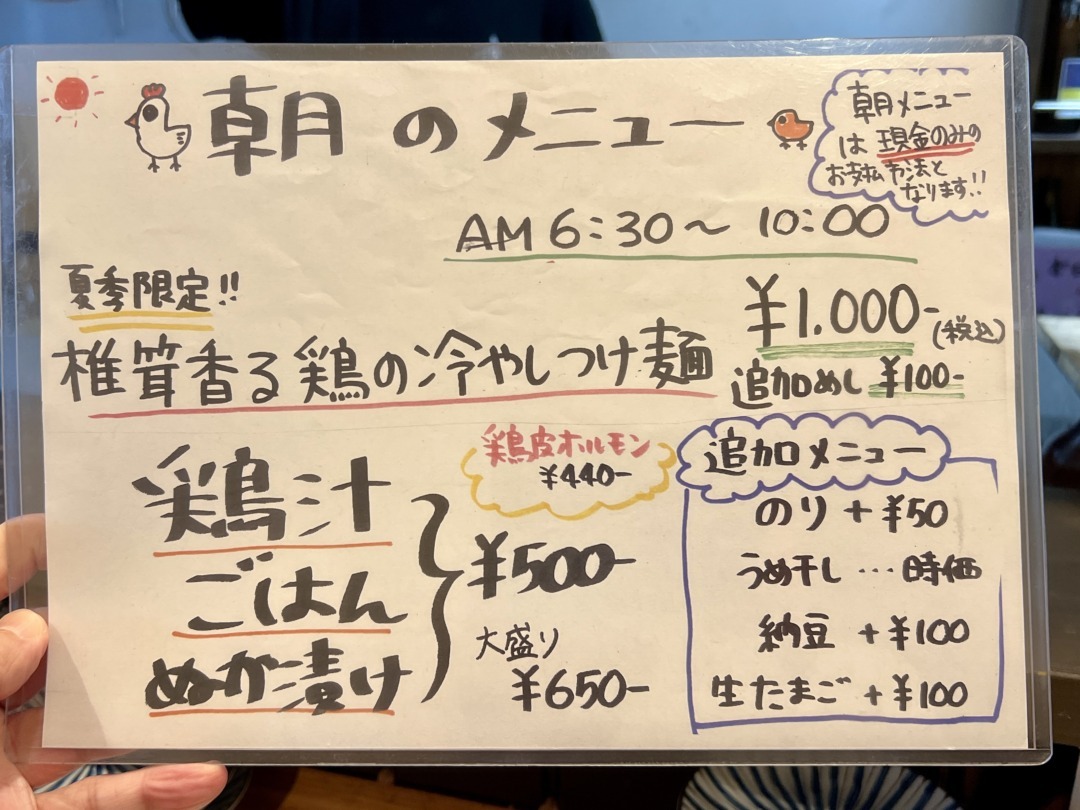 朝のメニュー
朝メニュー
は現金のみの
お支払方法と
なります!!
AM 6:30～10:00
夏季限定!!
椎茸香る鶏の冷やしつけ麺
¥1.000-(税込)
追加めし ¥100-
鶏皮ホルモン
¥440-
鶏汁
ごはん
ぬか漬け
¥500-
大盛り
¥650-
追加メニュー
のり+¥50
うめ干し…時価
納豆+¥100
生たまご+¥100